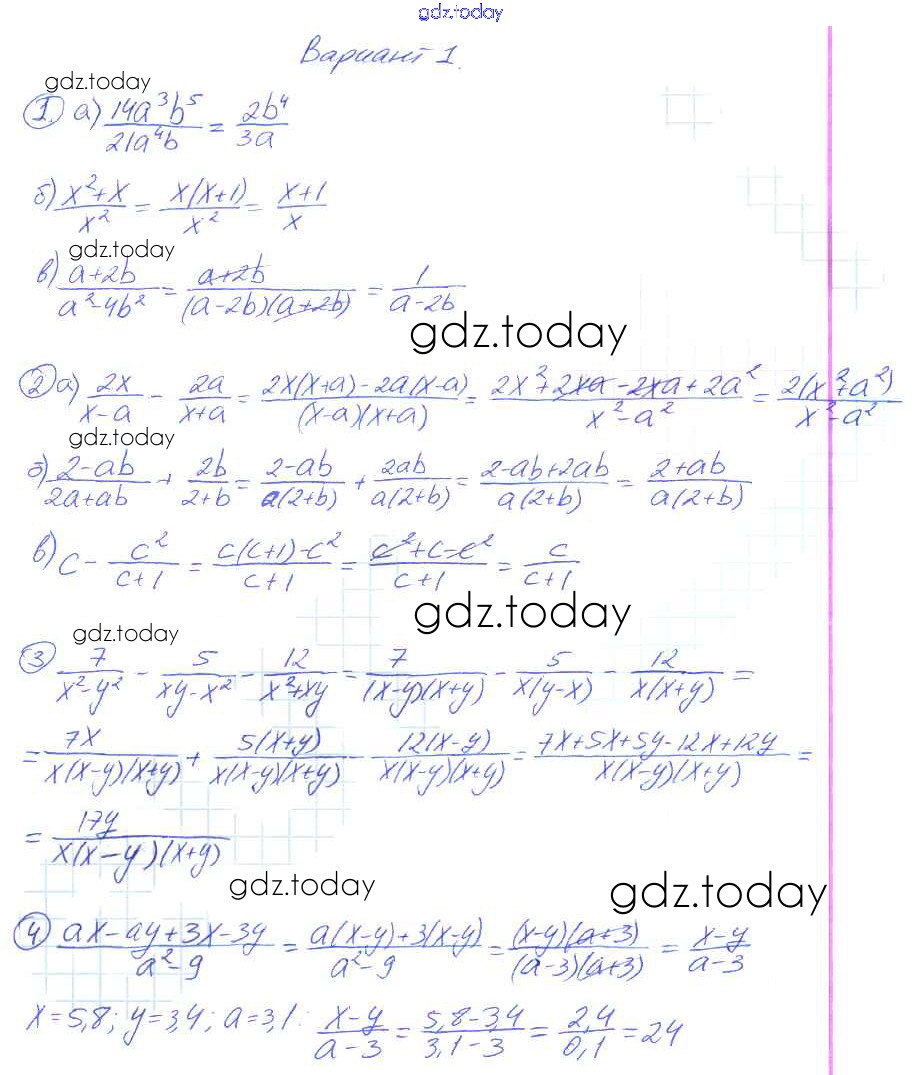 gdz.today
Вариант 1.
gdz.today
1. а) 14a³b⁵/21a⁴b = 2b⁴/3a
б) x²+x/x² = x(x+1)/x² = x+1/x
gdz.today
в) a+2b/a²-4b² = a+2b/(a-2b)(a+2b) = 1/a-2b
gdz.today
2 а) 2x/x-a - 2a/x+a = 2x(x+a)-2a(x-a)/(x-a)(x+a) = 2x²+2xa-2xa+2a²/x²-a² = 2(x²+a²)/x²-a²
gdz.today
б) 2-ab/2a+ab + 2b/2+b = 2-ab/a(2+b) + 2ab/a(2+b) = 2-ab+2ab/a(2+b) = 2+ab/a(2+b)
в) c - c²/c+1 = c(c+1)-c²/c+1 = c²+c-c²/c+1 = c/c+1
gdz.today
gdz.today
3 7/x²-y² - 5/xy-x² - 12/x²+xy = 7/(x-y)(x+y) - 5/x(y-x) - 12/x(x+y) =
= 7x/x(x-y)(x+y) + 5(x+y)/x(x-y)(x+y) - 12(x-y)/x(x-y)(x+y) = 7x+5x+5y-12x+12y/x(x-y)(x+y) =
= 17y/x(x-y)(x+y)
gdz.today
gdz.today
4 ax-ay+3x-3y/a²-9 = a(x-y)+3(x-y)/a²-9 = (x-y)(a+3)/(a-3)(a+3) = x-y/a-3
x=5,8; y=3,4; a=3,1: x-y/a-3 = 5,8-3,4/3,1-3 = 2,4/0,1 = 24